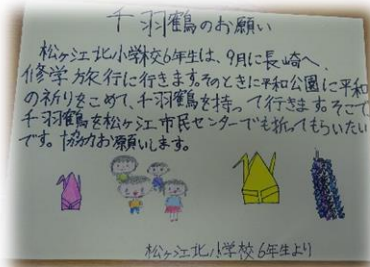 千羽鶴のお願い
松ヶ江北小学校6年生は、9月に長崎へ、
修学旅行に行きます。そのときに平和公園に平和
の祈りをこめて、千羽鶴を持って行きます。そこで
千羽鶴を松ヶ江市民センターでも折ってもらいたい
です。協力お願いします。
松ヶ江北小学校6年生より